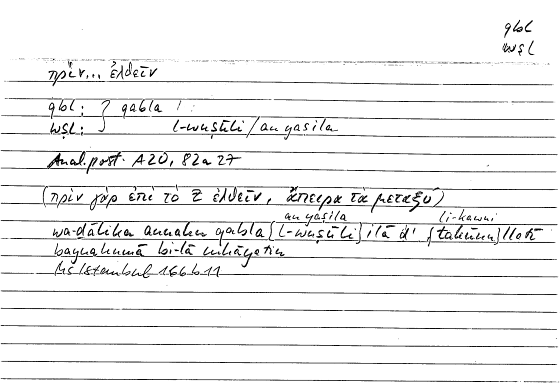 qbl
wṣl
πρίν... ἐλθεῖν
qbl: } qabla
wṣl: } l-wuṣūli / an yaṣila
Anal. post. A 20, 82a27
(πρὶν γὰρ ἐπὶ τὸ Ζ ἐλθεῖν, ἄπειρα τὰ μεταξύ)
an yaṣila li-kawni
wa-ḏālika annahu qabla {l-wuṣūli} ilā d' {takūnu} llatī
baynahumā bi-lā nihāyatin
Ms Istanbul 166b11